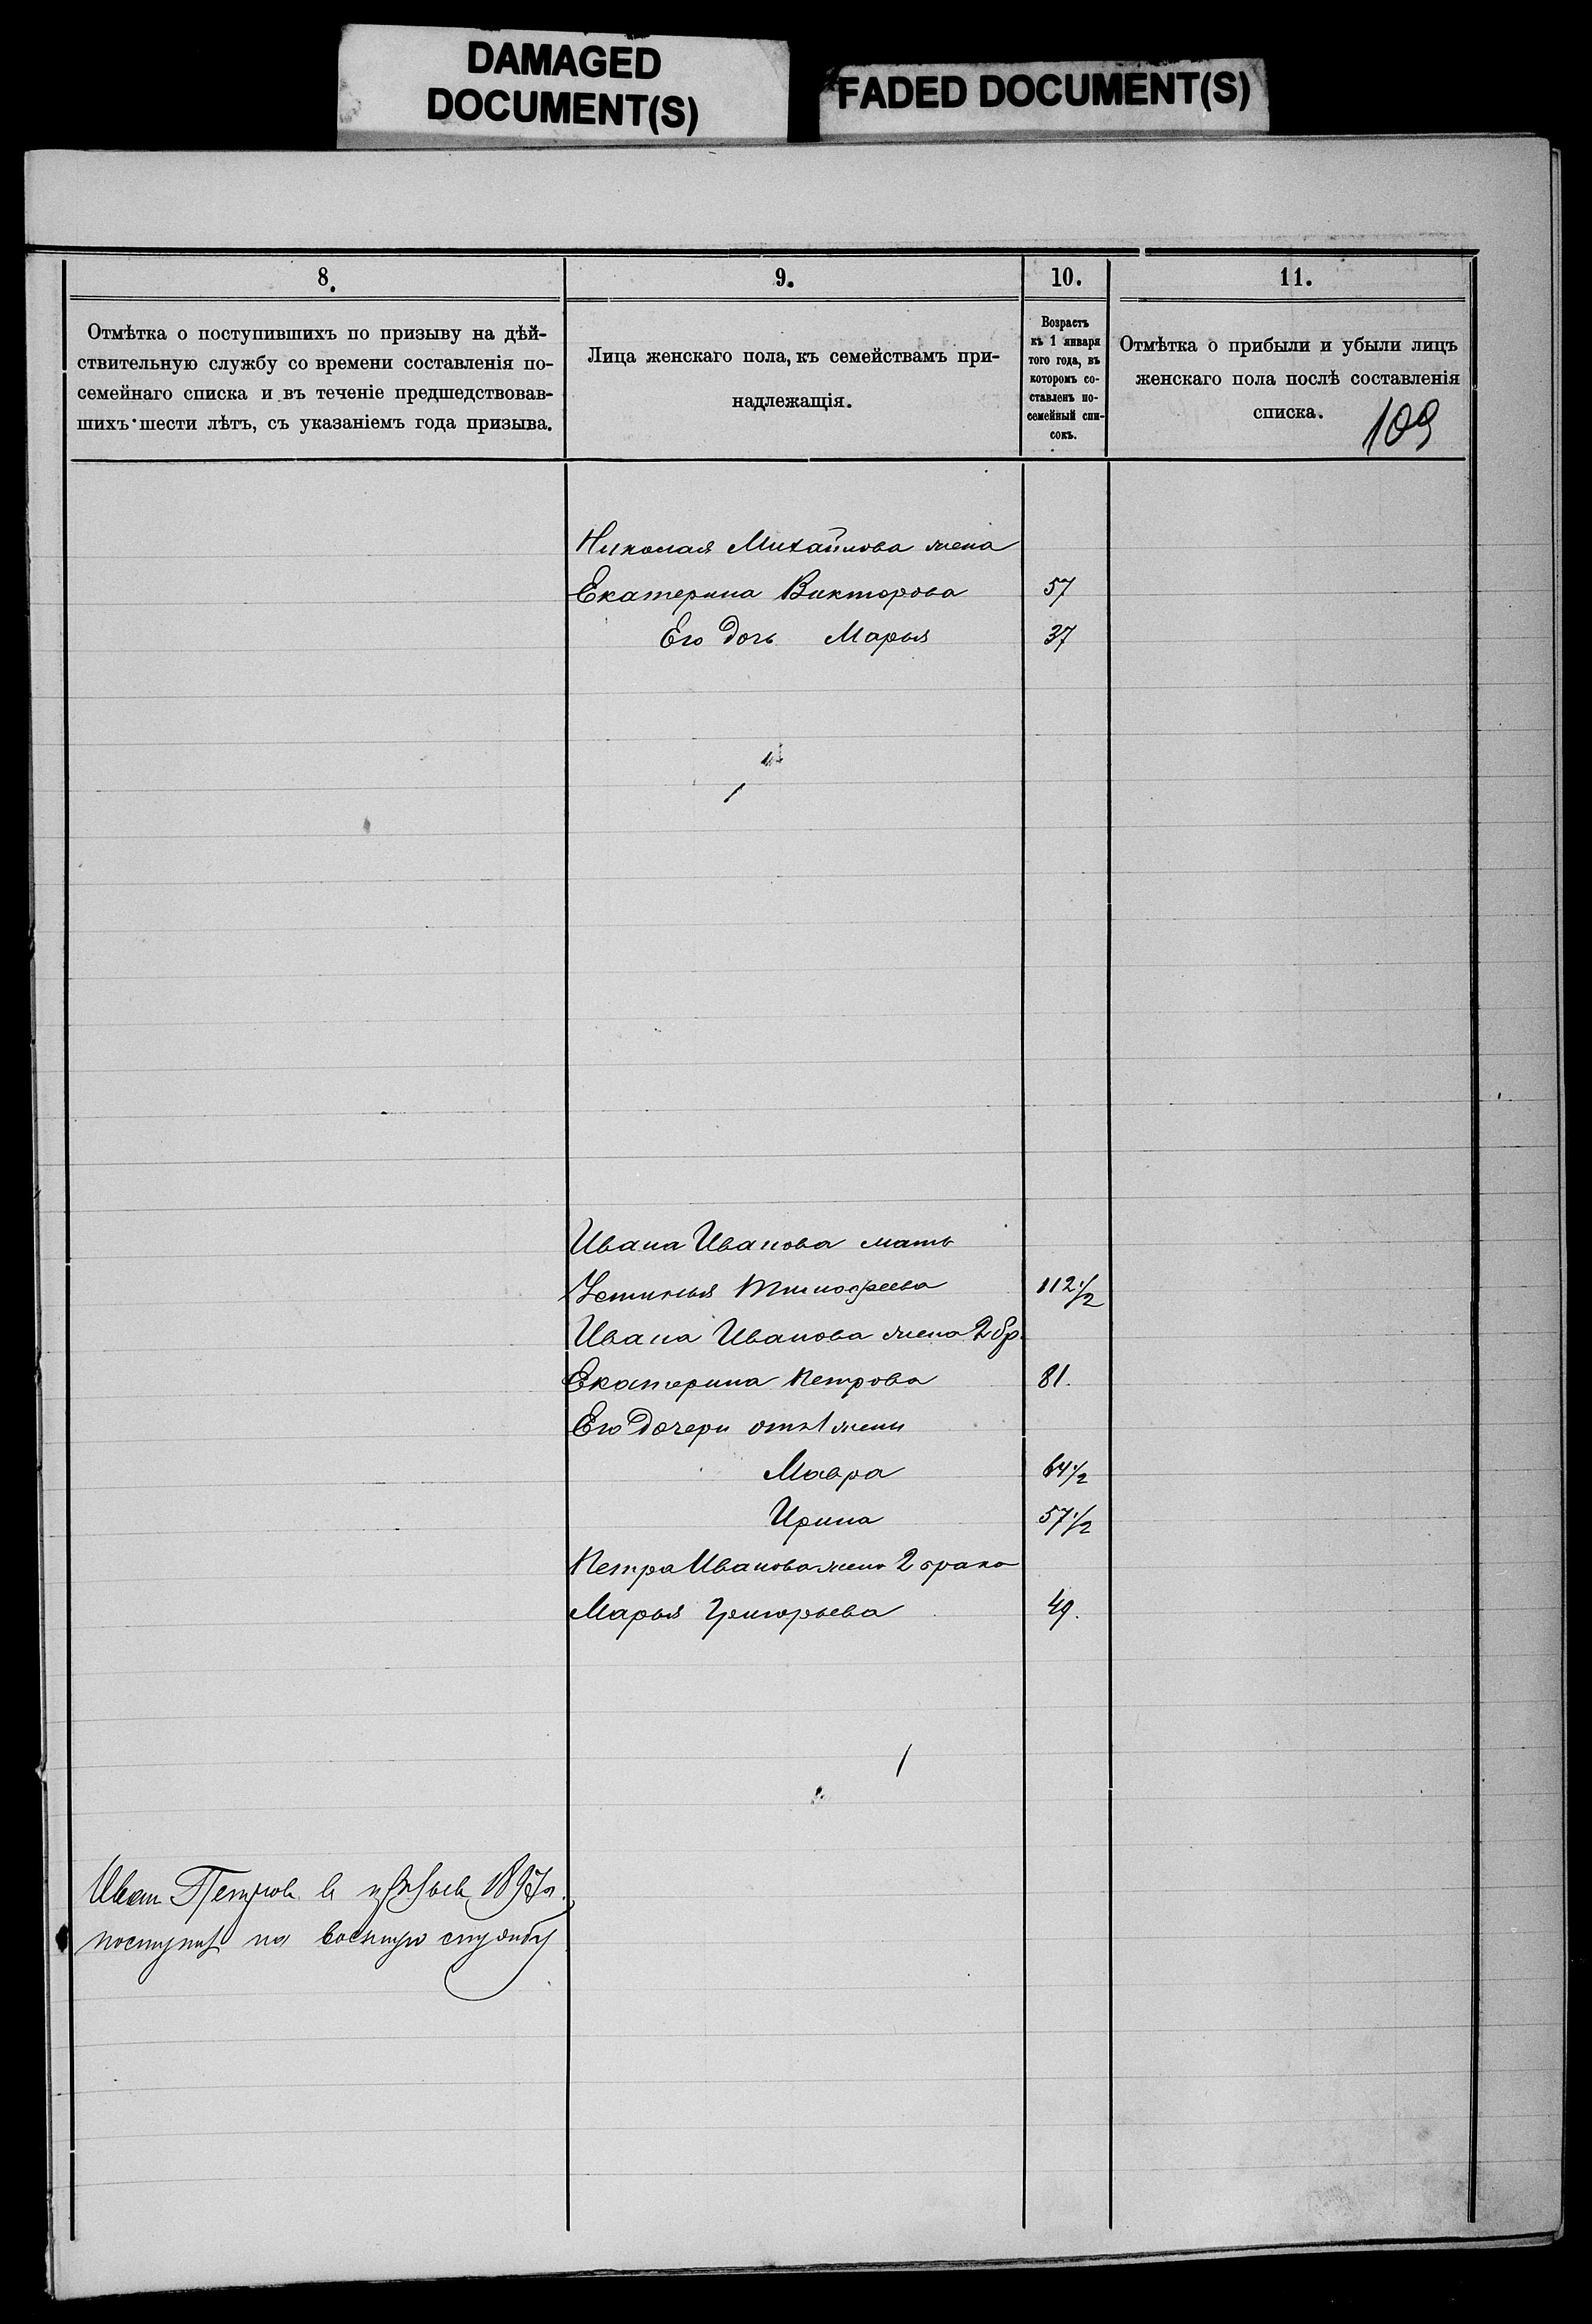 DAMAGED
DOCUMENT(S)
FADED DOCUMENT(S)
8.
Отмѣтка о поступившихъ по призыву на дѣй-
ствительную службу со времени составленія по-
семейнаго списка и въ теченіе предшедствовав-
шихъ шести лѣтъ, съ указаніемъ года призыва.
9.
Лица женскаго пола, къ семействамъ при-
надлежащія.
10.
Возрастъ
къ 1 января
того года, въ
которомъ со-
ставленъ по-
семейный спи-
сокъ.
11.
Отмѣтка о прибыли и убыли лицъ
женскаго пола послѣ составленія
списка.
109
Николая Михайлова жена
Екатерина Викторова 57
Его дочь Марья 37
Ивана Иванова мать
Устинья Тимофеева 112 1/2
Ивана Иванова жена 2 бр.
Екатерина Петрова 81.
Его дочери отъ 1 жены
Мавра 64 1/2
Ирина 57 1/2
Петра Иванова жена 2 брака
Марья Григорьева 49.
Иван Петров в призыв 1897 г.
поступил на военную службу